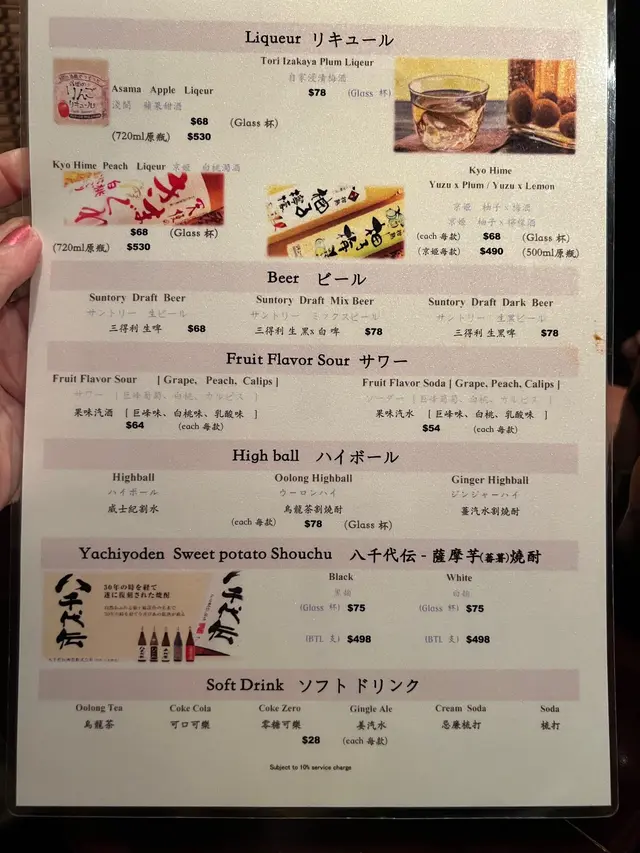 Liqueur リキュール
Tori Izakaya Plum Liqueur
自家浸漬梅酒
$78 (Glass 杯)
りんご
リキュール
Asama Apple Liqeur
浅間 蘋果甜酒
$68 (Glass 杯)
(720ml原瓶) $530
Kyo Hime Peach Liqueur 京姬 白桃濁酒
$68 (Glass 杯)
(720ml原瓶) $530
Kyo Hime
Yuzu x Plum / Yuzu x Lemon
京姬 柚子x梅酒
京姬 柚子x檸檬酒
(each 每款) $68 (Glass 杯)
(京姬每款) $490 (500ml原瓶)
Beer ビール
Suntory Draft Beer
サントリー 生ビール
三得利 生啤 $68
Suntory Draft Mix Beer
サントリー ミックスビール
三得利 生 黑x 白 啤 $78
Suntory Draft Dark Beer
サントリー 生黒ビール
三得利 生黑啤 $78
Fruit Flavor Sour サワー
Fruit Flavor Sour [ Grape, Peach, Calips ]
サワー [ 巨峰葡萄、白桃、カルピス ]
果味汽酒 [ 巨峰味、白桃味、乳酸味 ]
$64 (each 每款)
Fruit Flavor Soda [ Grape, Peach, Calips ]
ソーダー [ 巨峰葡萄、白桃、カルピス ]
果味汽水 [ 巨峰味、白桃、乳酸味 ]
$54 (each 每款)
High ball ハイボール
Highball
ハイボール
威士紀割水
Oolong Highball
ウーロンハイ
烏龍茶割燒酎
Ginger Highball
ジンジャーハイ
薑汽水割燒酎
(each 每款) $78 (Glass 杯)
Yachiyoden Sweet potato Shouchu 八千代伝 - 薩摩芋(蕃薯)焼酎
八千代伝
30年の時を経て
遂に復刻された焼酎
八千代伝
Black
黒麹
(Glass 杯) $75
(BTL 支) $498
White
白麹
(Glass 杯) $75
(BTL 支) $498
Soft Drink ソフトドリンク
Oolong Tea
烏龍茶
Coke Cola
可口可樂
Coke Zero
零糖可樂
Gingle Ale
姜汽水
Cream Soda
忌廉梳打
Soda
梳打
$28 (each 每款)
Subject to 10% service charge